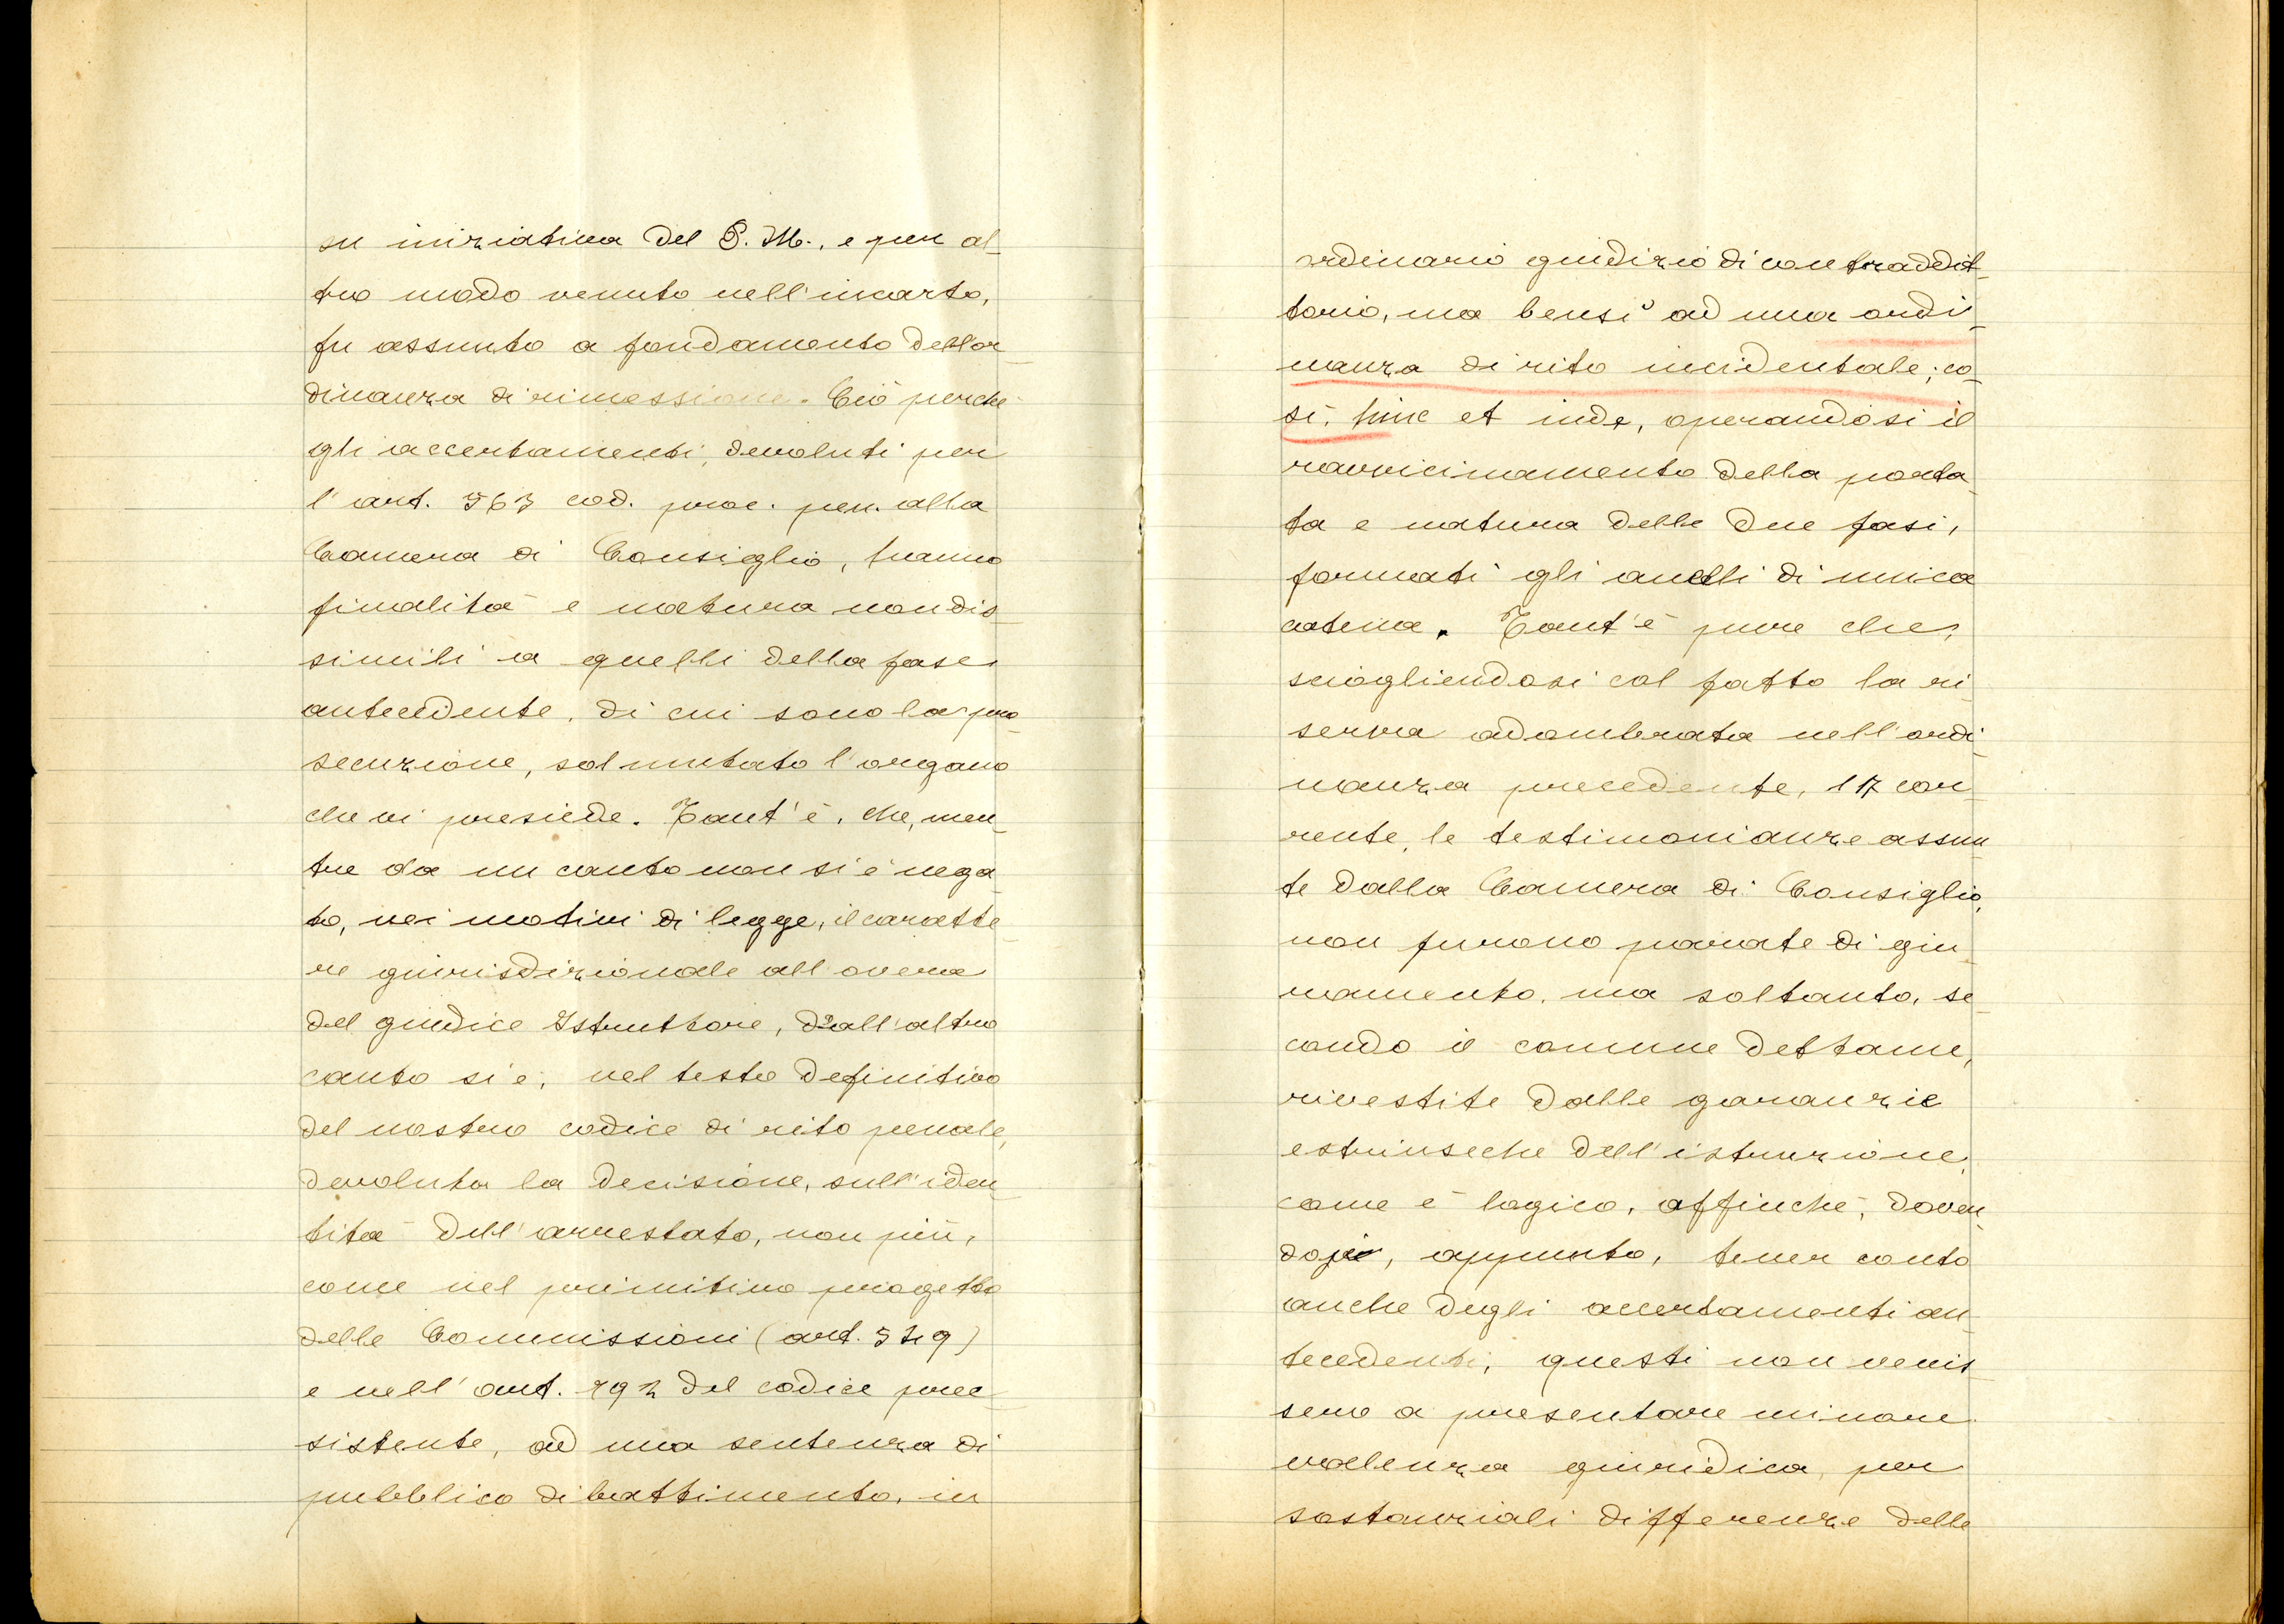 su iniziativa del P. M., e per al-
tro modo venuto nell'incarto,
fu assunto a fondamento dell'or-
dinanza di rimessione. Ciò perchè
gli accertamenti, devoluti per
l'art. 563 cod. proc. pen. alla
Camera di Consiglio, hanno
finalità e natura non dis-
simili a quelli della fase
antecedente, di cui sono la pro-
secuzione, sol mutato l'organo
che vi presiede. Tant'è, che, men-
tre da un canto non si è nega-
to, nei motivi di legge, il caratte-
re giurisdizionale all'opera
del giudice Istruttore, dall'altro
canto si è, nel testo definitivo
del nostro codice di rito penale,
devoluta la decisione, sull'iden-
tità dell'arrestato, non più,
come nel primitivo progetto
delle Commissioni (art.
e nell'art. 792 del codice pree-
sistente, ad una sentenza di
pubblico dibattimento, in
ordinario giudizio di contraddit-
torio, ma bensì ad una ordi-
nanza di rito incidentale; co-
sì, hinc et inde, operandosi il
ravvicinamento della porta-
ta e natura delle due fasi,
formati gli anelli di unica
catena. Tant'è pure che,
sciogliendosi col fatto la ri-
serva adombrata nell'ordi-
nanza precedente, 17 cor-
rente, le testimonianze assun-
te dalla Camera di Consiglio,
non furono pavate di giu-
ramento, ma soltanto, se-
condo il comune dettame,
rivestite dalle garanzie
estrinseche dell'istruzione,
come è logico, affinchè, doven-
dosi, appunto, tener conto
anche degli accertamenti an-
tecedenti, questi non venis-
sero a presentare minore
valenza giuridica, per
sostanziali differenze delle